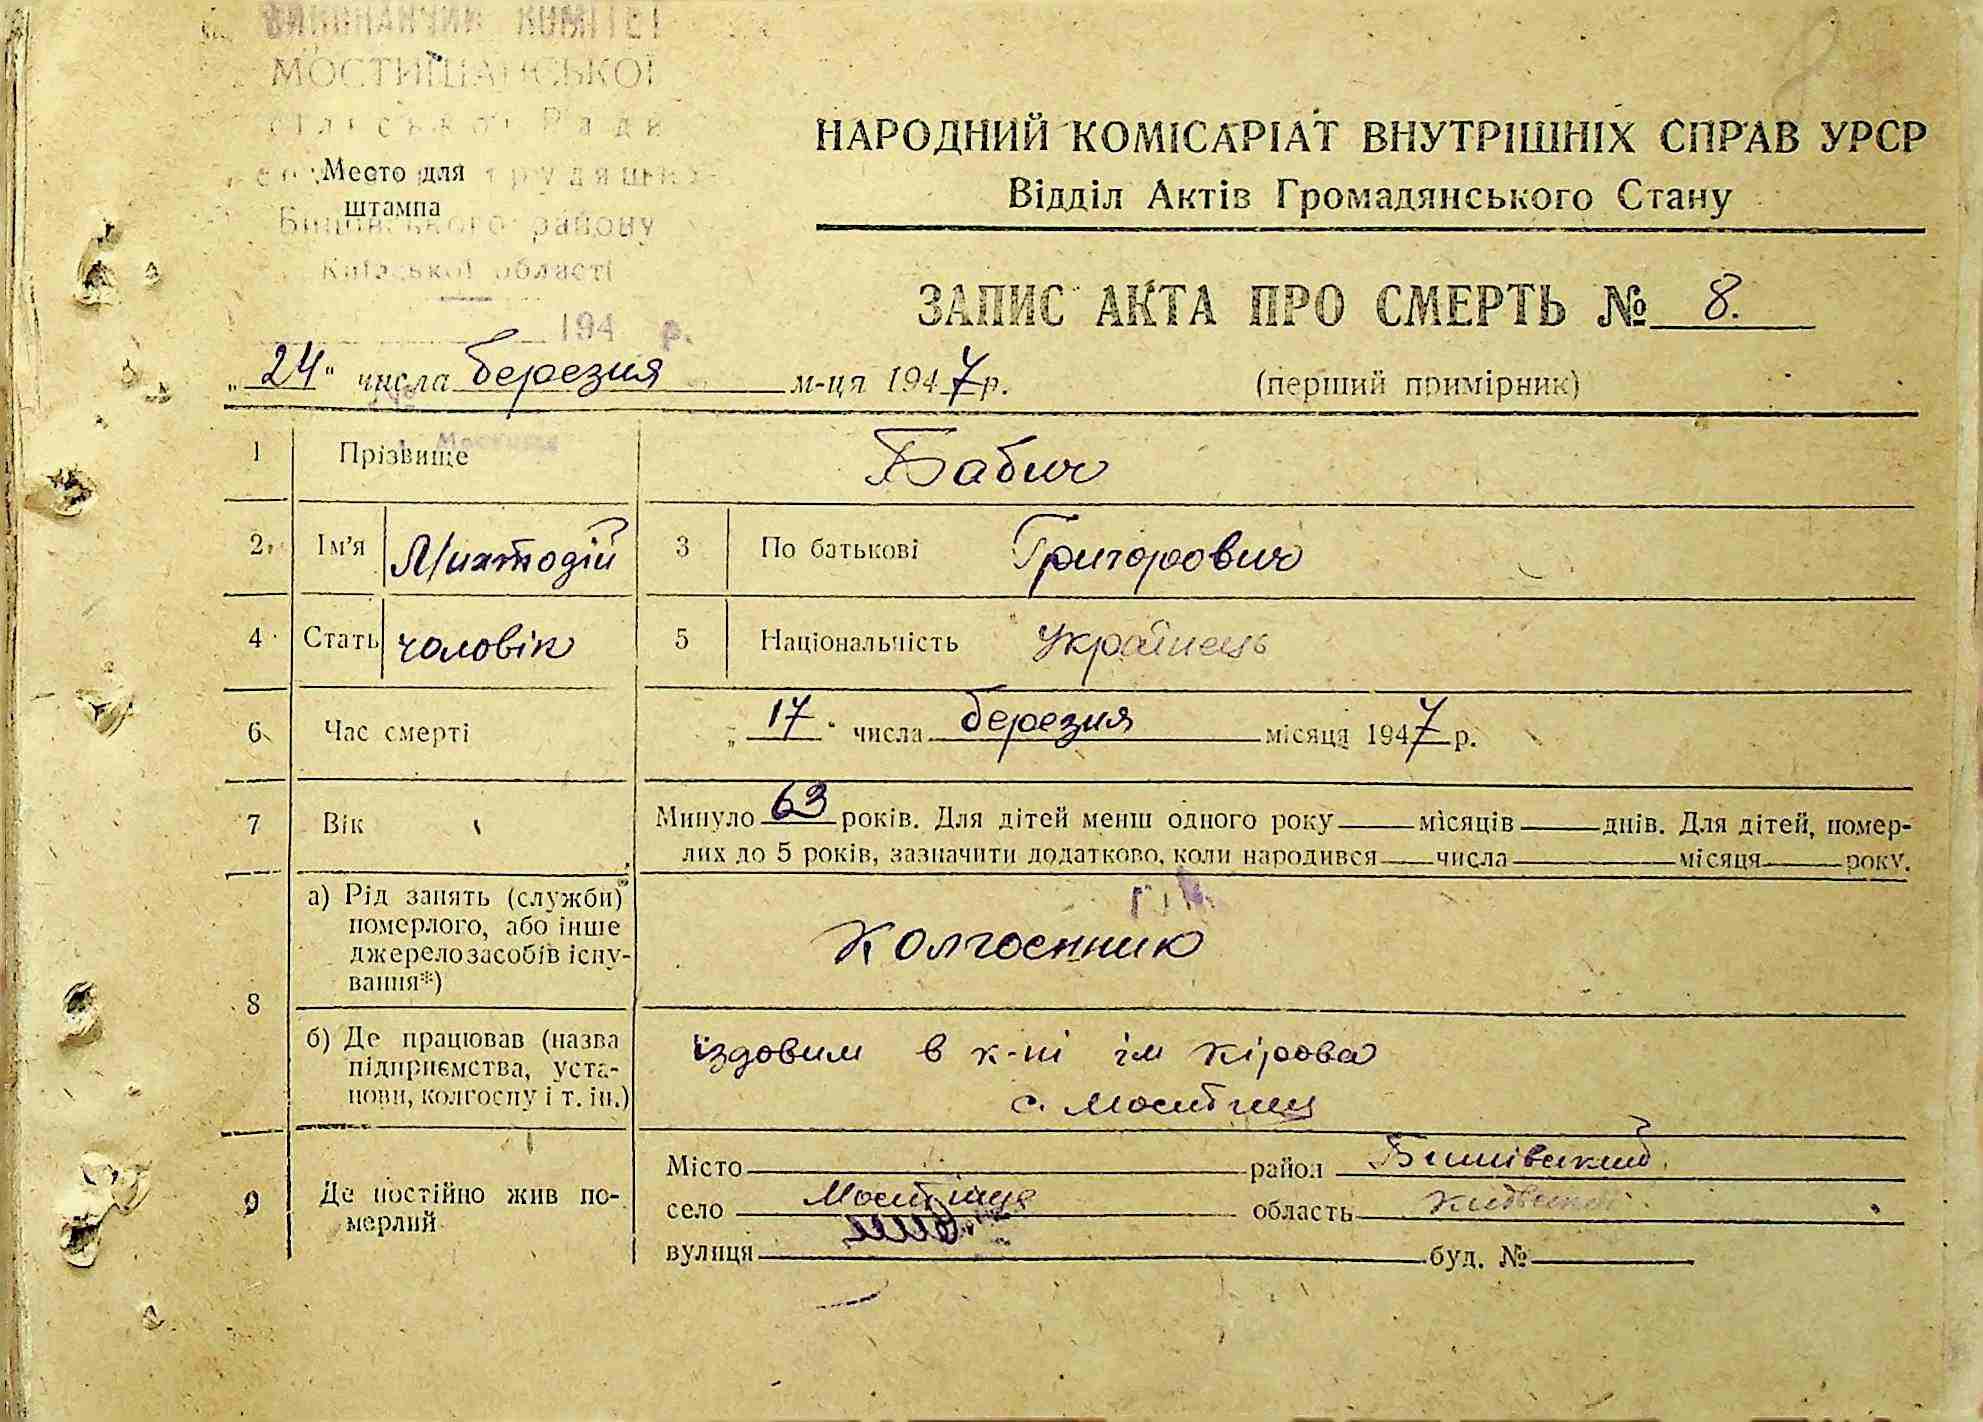 ВИКОНАВЧИЙ КОМІТЕТ
МОСТИЩАНСЬКОЇ
сільської Ради
трудящих
Бишівського району
Київської області
194 р.
Место для
штампа
НАРОДНИЙ КОМІСАРІАТ ВНУТРІШНІХ СПРАВ УРСР
Відділ Актів Громадянського Стану
ЗАПИС АКТА ПРО СМЕРТЬ № 8.
„24" числа березня м-ця 1947 р. (перший примірник)
1 Прізвище Бабич
2 Ім'я Михтодій 3 По батькові Григорович
4 Стать чоловік 5 Національність Українець
6 Час смерті „17" числа березня місяця 1947 р.
7 Вік Минуло 63 років. Для дітей менш одного року місяців днів. Для дітей, помер-
лих до 5 років, зазначити додатково, коли народився числа місяця року.
8 а) Рід занять (служби)
померлого, або інше
джерело засобів існу-
вання*)
Колгоспник
б) Де працював (назва
підприємства, уста-
нови, колгоспу і т. ін.)
їздовим в к-пі ім Кірова
с. Мостищ
9 Де постійно жив по-
мерлий
Місто район Бишівський
село Мостище область Київської
вулиця буд. №